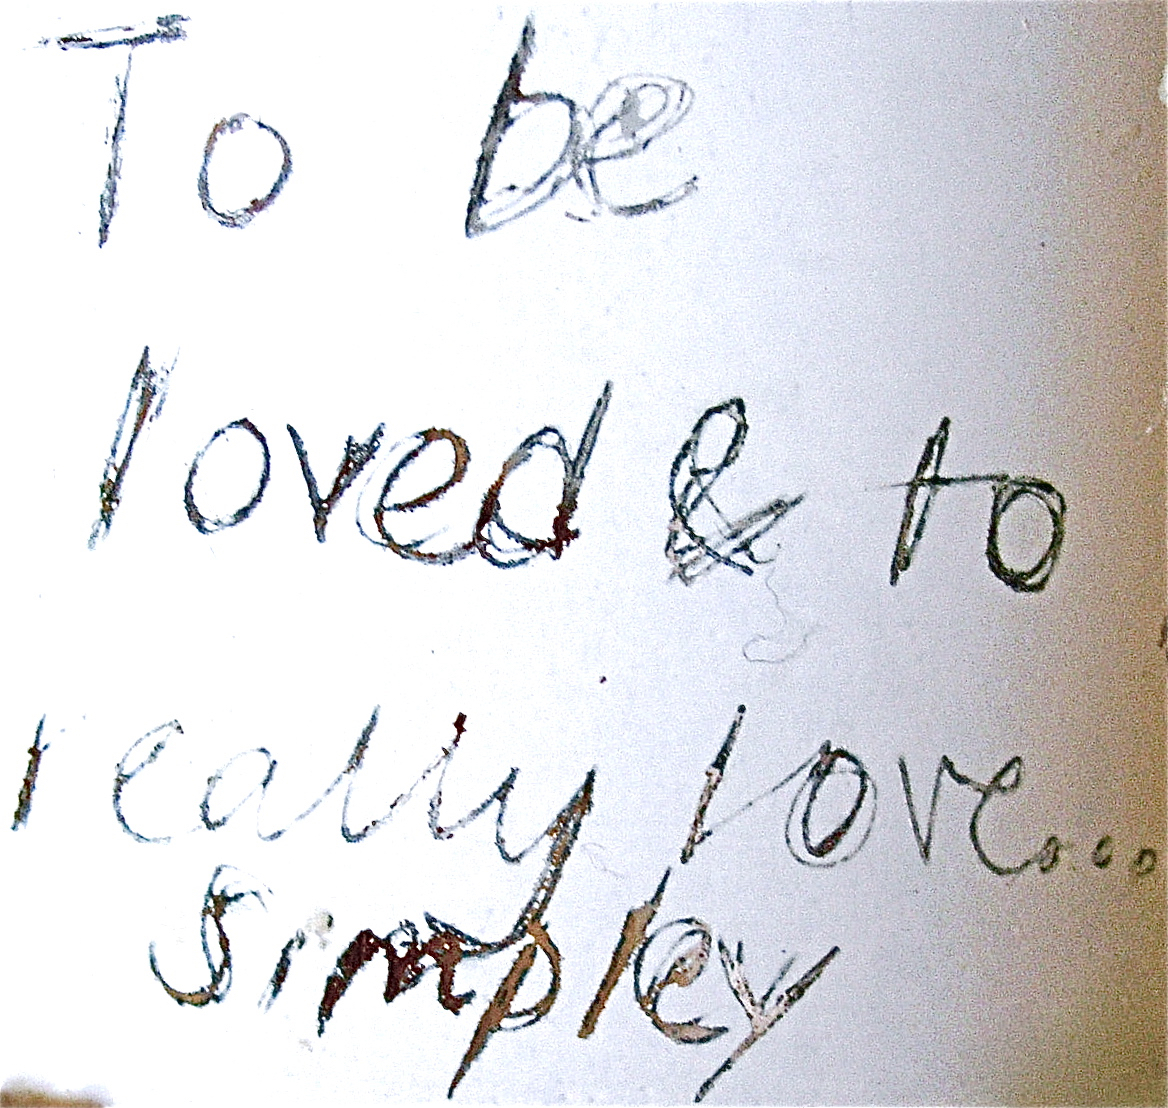 To be
loved & to
really love...
simpley